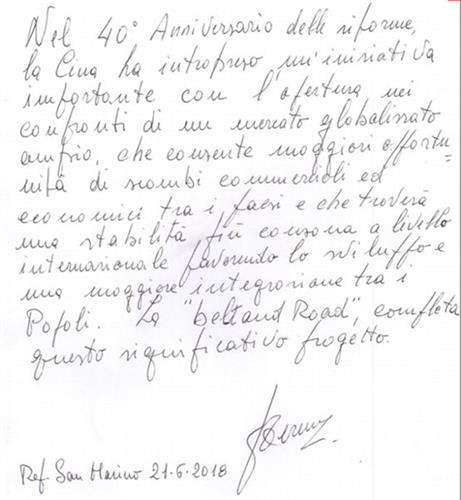 Nel 40° Anniversario delle riforme,
la Cina ha intrapreso un'iniziativa
importante con l'apertura nei
confronti di un mercato globalizzato
ampio, che consente maggiori opportu-
nità di scambi commerciali ed
economici tra i paesi e che troverà
una stabilità più consona a livello
internazionale favorendo lo sviluppo e
una maggiore integrazione tra i
Popoli. La "belt and Road", completa
questo significativo progetto.
Rep. San Marino 21-6-2018